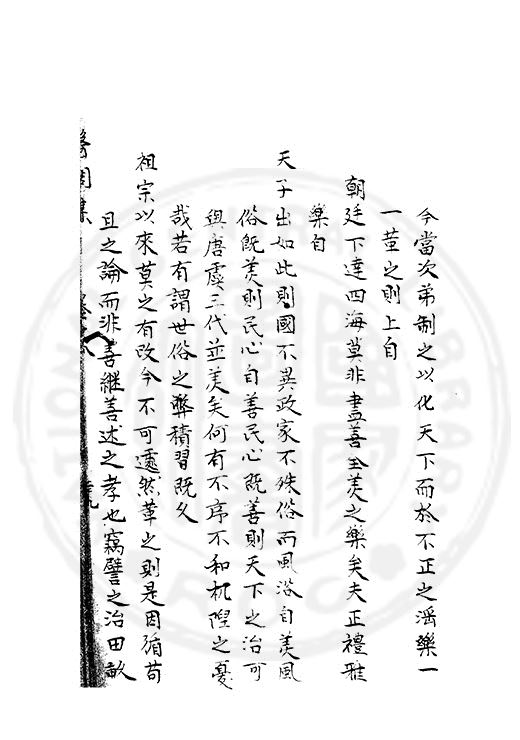 今當次弟制之以化天下而於不正之滛樂一
一革之則上自
朝廷下達四海莫非盡善全美之樂矣夫正禮雅
樂自
天子出如此則國不異政家不殊俗而風俗自美風
俗既美則民心自善民心既善則天下之治可
與唐虞三代並美矣何有不序不和杌隉之憂
哉若有謂世俗之弊積習既久
祖宗以來莫之有改今不可遽然革之則是因循苟
且之論而非善繼善述之孝也竊譬之治田畝